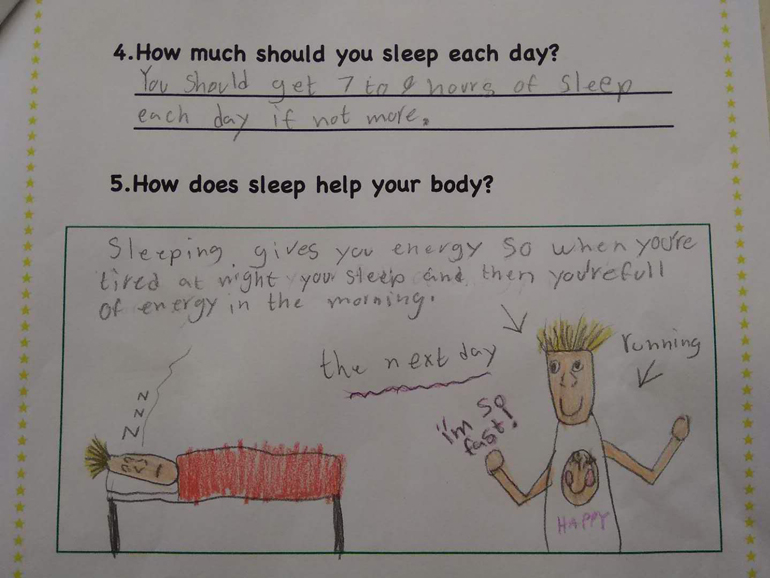 4.How much should you sleep each day?
You should get 7 to 9 hours of sleep
each day if not more.
5.How does sleep help your body?
Sleeping gives you energy so when you're
tired at night you sleep and then you're full
of energy in the morning.
the next day
running
I'm so
fast!
Z Z Z
HAPPY